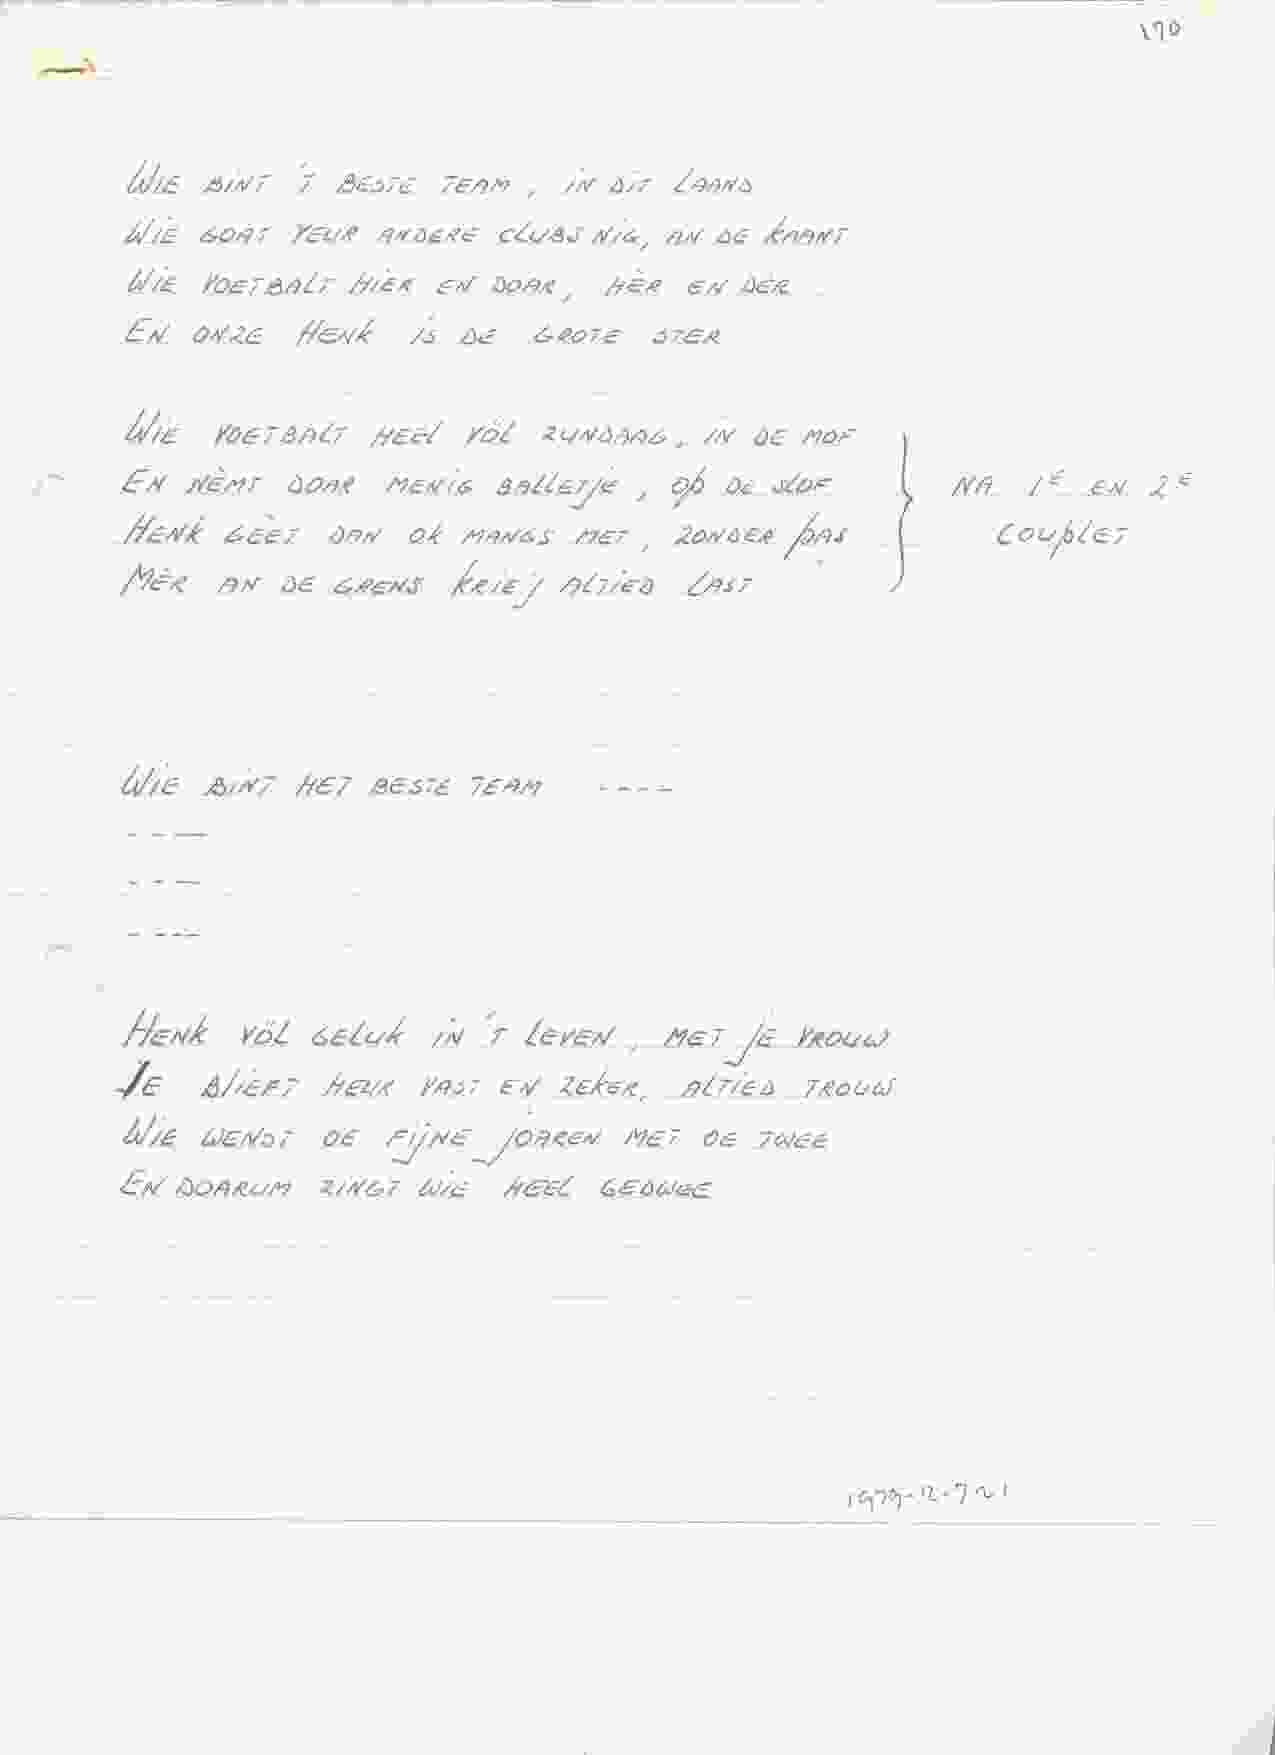 170
WIE BINT 'T BESTE TEAM, IN DIT LAAND
WIE GOAT VEUR ANDERE CLUBS NIG, AN DE KAANT
WIE VOETBALT HIER EN DOAR, HÈR EN DÈR
EN ONZE HENK IS DE GROTE STER
WIE VOETBALT HEEL VÖL ZUNDAAG, IN DE MOF
EN NÈMT DOAR MENIG BALLETJE, OP DE SLOF
HENK GÈET DAN OK MANGS MET, ZONDER PAS
MÈR AN DE GRENS KRIEJ ALTIED LAST
NA 1E EN 2E
COUPLET
WIE BINT HET BESTE TEAM ----
---
---
----
HENK VÖL GELUK IN 'T LEVEN, MET JE VROUW
JE BLIEFT HEUR VAST EN ZEKER, ALTIED TROUW
WIE WENST OE FIJNE JOAREN MET OE TWEE
EN DOARUM ZINGT WIE HEEL GEDWEE
1979-12-721